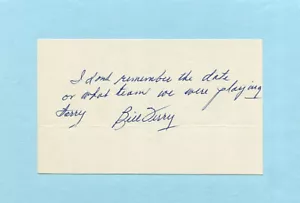 I dont remember the date
or what team we were playing
Sorry Bill Terry